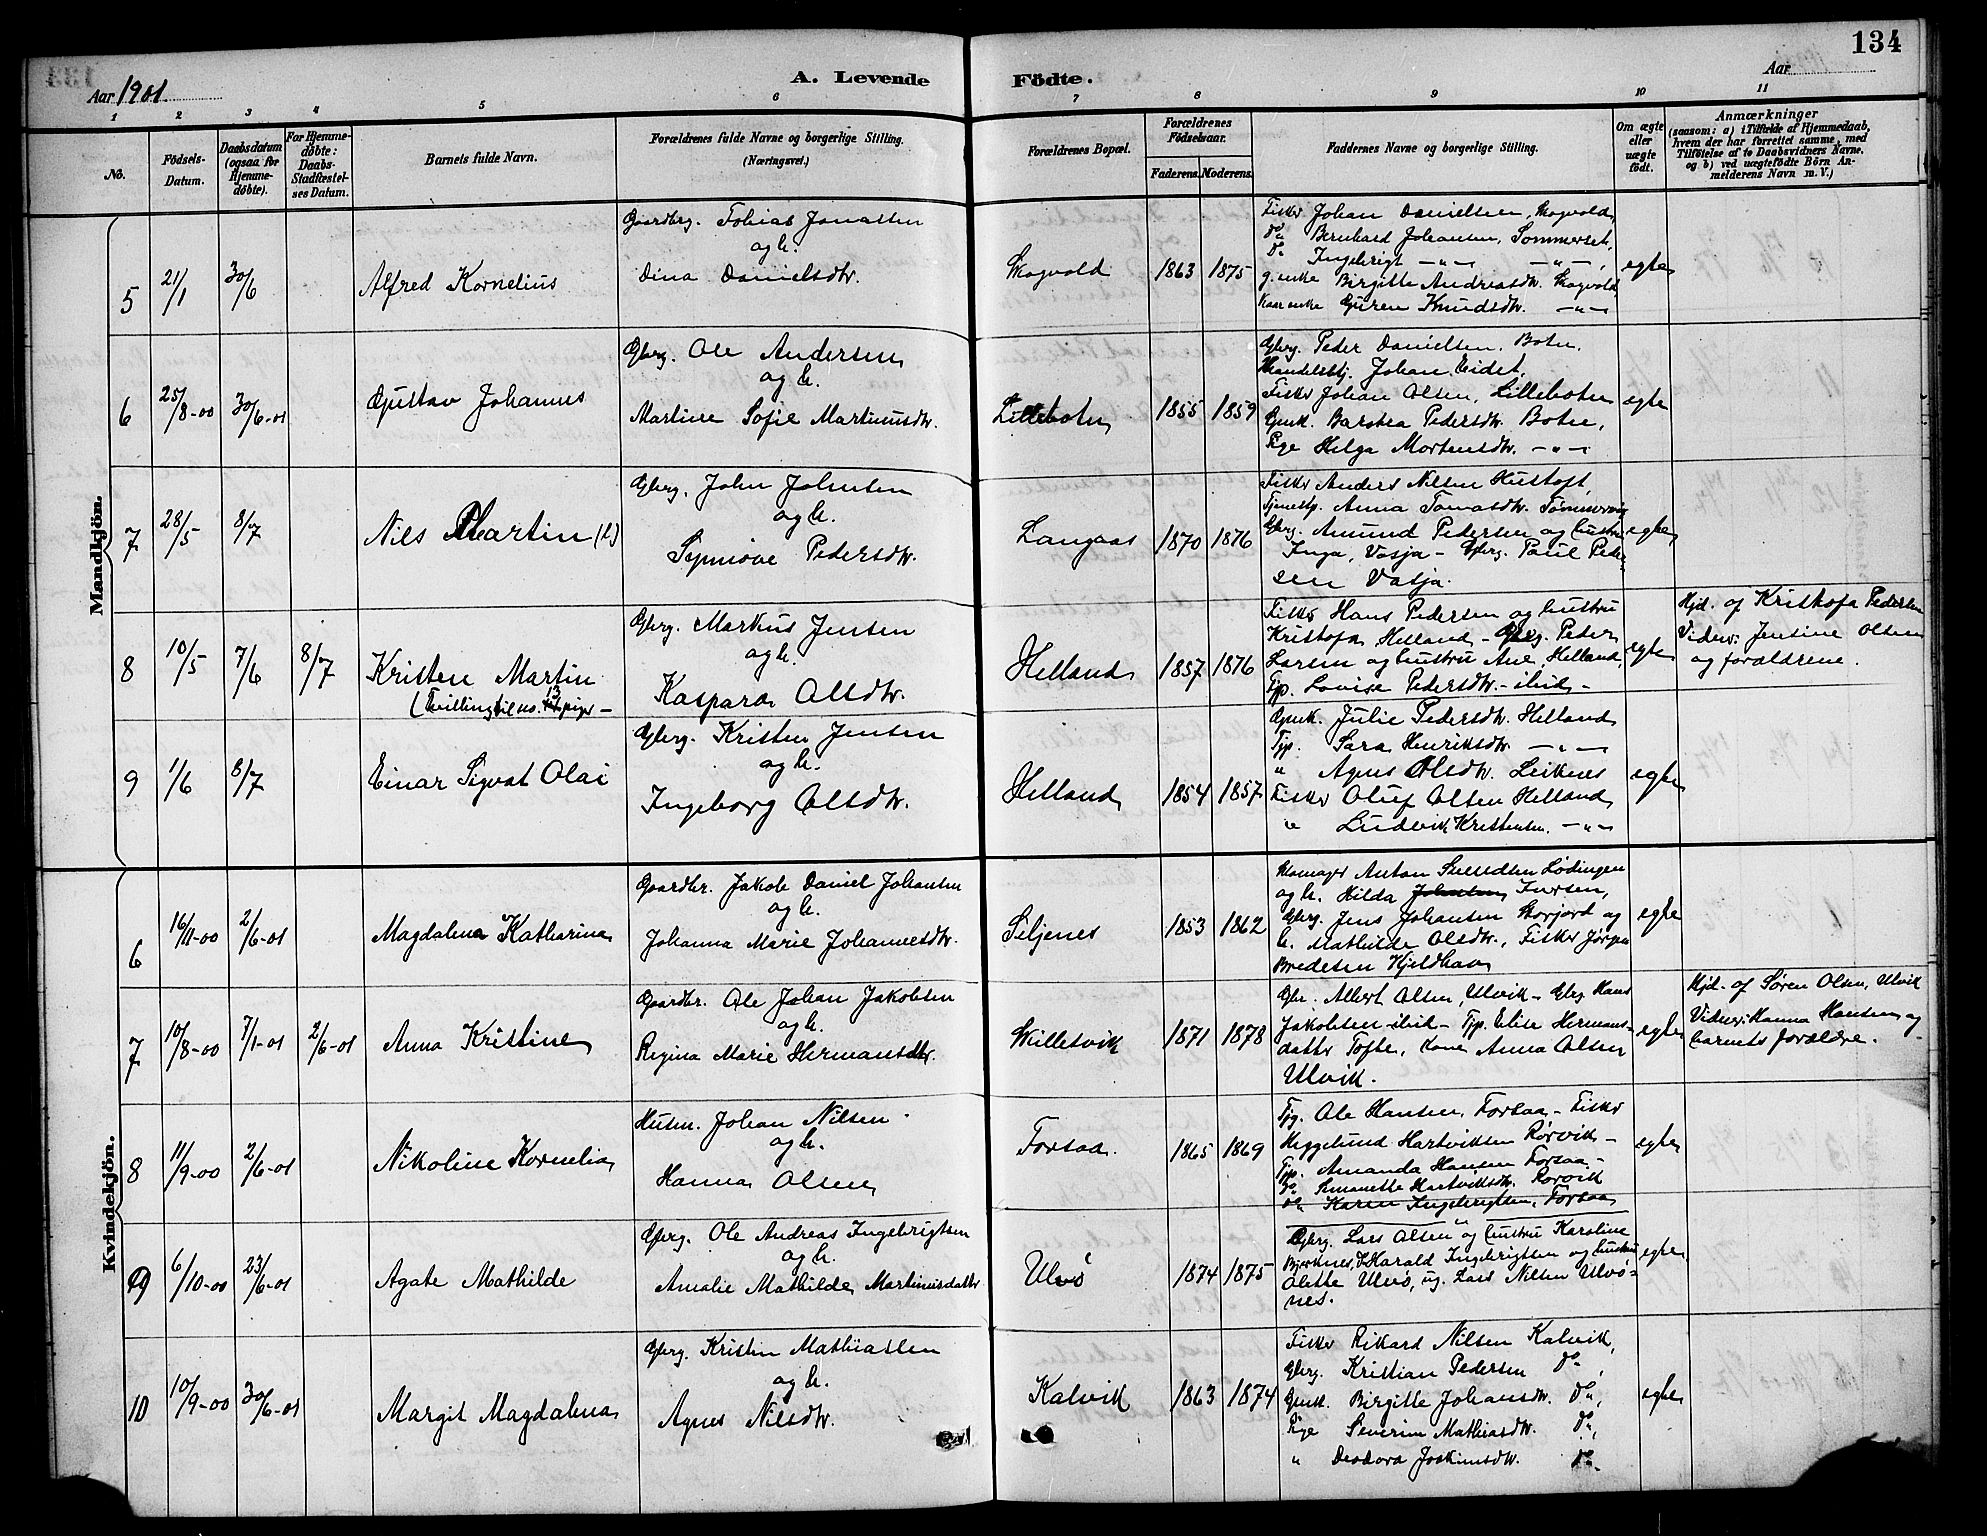 134
Aar 1901
A. Levende Födte.
Aar
1 2 3 4 5 6 7 8 9 10 11
No.
Födsels-Datum.
Daabsdatum (ogsaa for Hjemme-döbte).
For Hjemme-döbte: Daabs-Stadfæstel-ses Datum.
Barnets fulde Navn.
Forældrenes fulde Navne og borgerlige Stilling. (Næringsvei.)
Forældrenes Bopæl.
Forældrenes Födselsaar.
Faderens. Moderens.
Faddernes Navne og borgerlige Stilling.
Om ægte eller uægte födt.
Anmærkninger
(saasom: a) i Tilfælde af Hjemmedaab, hvem der har forrettet samme, med Tilföielse af to Daabsvidners Navne. og b) ved uægtefödte Börn An-melderens Navn m. V.)
Mandkjön.
5 21/1 30/6 Alfred Kornelius
Gaardbrg. Tobias Jonassen
og h.
Dina Danielsdtr.
Skogvold 1863 1875
Fisker Johan Danielsen, Skogvold,
Do Bernhard Johansen, Sommerset,
Do Ingebrigt —"— —"—,
g. enke Birgitte Andreasdtr. Skogvold,
Kaarenke Guren Knudsdtr. —"—
egte
6 25/8-00 30/6-01 Gustav Johannes
Gbrg. Ole Andersen
og h.
Martine Sofie Martinusdtr.
Lillebotn 1855 1859
Gbrg. Peder Danielsen, Botn,
Handelsbtj. Johan Eidet,
Fisker Johan Olsen, Lillebotn
Gmk. Barobea Pedersdtr. Botn,
Pige Helga Mortensdtr. —"—
egte
7 28/5 8/7 Nils Martin (L)
Gbrg. John Johnsen
og h.
Synnöve Pedersdtr.
Langaas 1870 1876
Fisker Anders Nilsen Hustoft,
Tjenestp. Anna Tomasdtr. Tömmervig
Gbrg. Amund Pedersen og hustru
Inga, Vasja - Gbrg. Paul Peder-
sen Vasja.
egte
8 10/5 7/6 8/7 Kristen Martin
(Tvilling til no. 13 piger —
Gbrg. Markus Jensen
og h.
Kaspara Olsdtr.
Helland 1857 1876
Fisker Hans Pedersen og hustru
Kristofa Helland - Gbrg. Peder
Larsen og hustru Ane, Helland,
Tjp. Lovise Pedersdtr. - ibid -
egte
Hjd. af Kristofa Pedersen
Vidner: Jentine Olsen
og forældrene.
9 1/6 8/7 Einar Sigvat Olai
Gbrg. Kristen Jensen
og h.
Ingeborg Olsdtr.
Helland 1854 1857
Gmk. Julie Pedersdtr. Helland
Tjp. Sara Henriksdtr. —"—
" Agnes Olsdtr. Leiknes
Fisker Oluf Olsen Helland
" Ludvik Kristensen. —"—
egte
Kvindekjön.
6 16/11-00 2/6-01 Magdalena Katharina
Gaardbr. Jakob Daniel Johansen
og h.
Johanna Marie Johannesdtr.
Seljenes 1853 1862
Skomager Anton Svendsen Lödingen
og h. Hilda Johnsen Iversen,
Gbrg. Jens Johansen Storjord og
h. Mathilde Olsdtr., Fisker Jörgen
Bredesen Kjeldhav
egte
7 10/8-00 7/1-01 2/6-01 Anna Kristine
Gaardbr. Ole Johan Jakobsen
og h.
Regina Marie Hermansdtr.
Skilletvik 1871 1878
Gbr. Albert Olsen, Ulvik - Gbrg Hans
Jakobsen - ibid - Tjp. Elise Hermans-
datter Tofte, kone Anna Olsen
Ulvik.
egte
Hjd. af Sören Olsen, Ulvik
Vidner: Hanna Hansen og
barnets forældre.
8 11/9-00 2/6-01 Nikoline Kornelia
Husm. Johan Nilsen
og h.
Hanna Olsen
Forsaa. 1865 1869
Tjg. Ole Hansen, Forsaa - Fisker
Heggelund Hartviksen Rörvik -
Tjp. Amanda Hansen Forsaa -
Do Simonette Hartviksdtr. Rorvik
Do Karen Ingebrigtsen, Forsaa
egte
9 6/10-00 23/6-01 Agate Mathilde
Gbrg. Ole Andreas Ingebrigtsen
og h.
Amalie Mathilde Martinusdatter
Ulvö 1874 1875
Gbrg. Lars Olsen og hustru Karoline
Bjerknes, Do Harald Ingebrigtsen og hustru
Olette Ulvö, ug. Lars Nilsen Ulvö-
nes.
egte
10 10/9-00 30/6-01 Margit Magdalena
Gbrg. Kristen Mathiassen
og h.
Agnes Nilsdtr.
Kalvik 1863 1874
Fisker Rikard Nilsen Kalvik,
Gbrg. Kristian Pedersen Do,
Gmk. Birgitte Johansdtr. Do,
Pige Severine Mathiasdtr. Do,
" Deodora Joakimsdtr. Do
egte